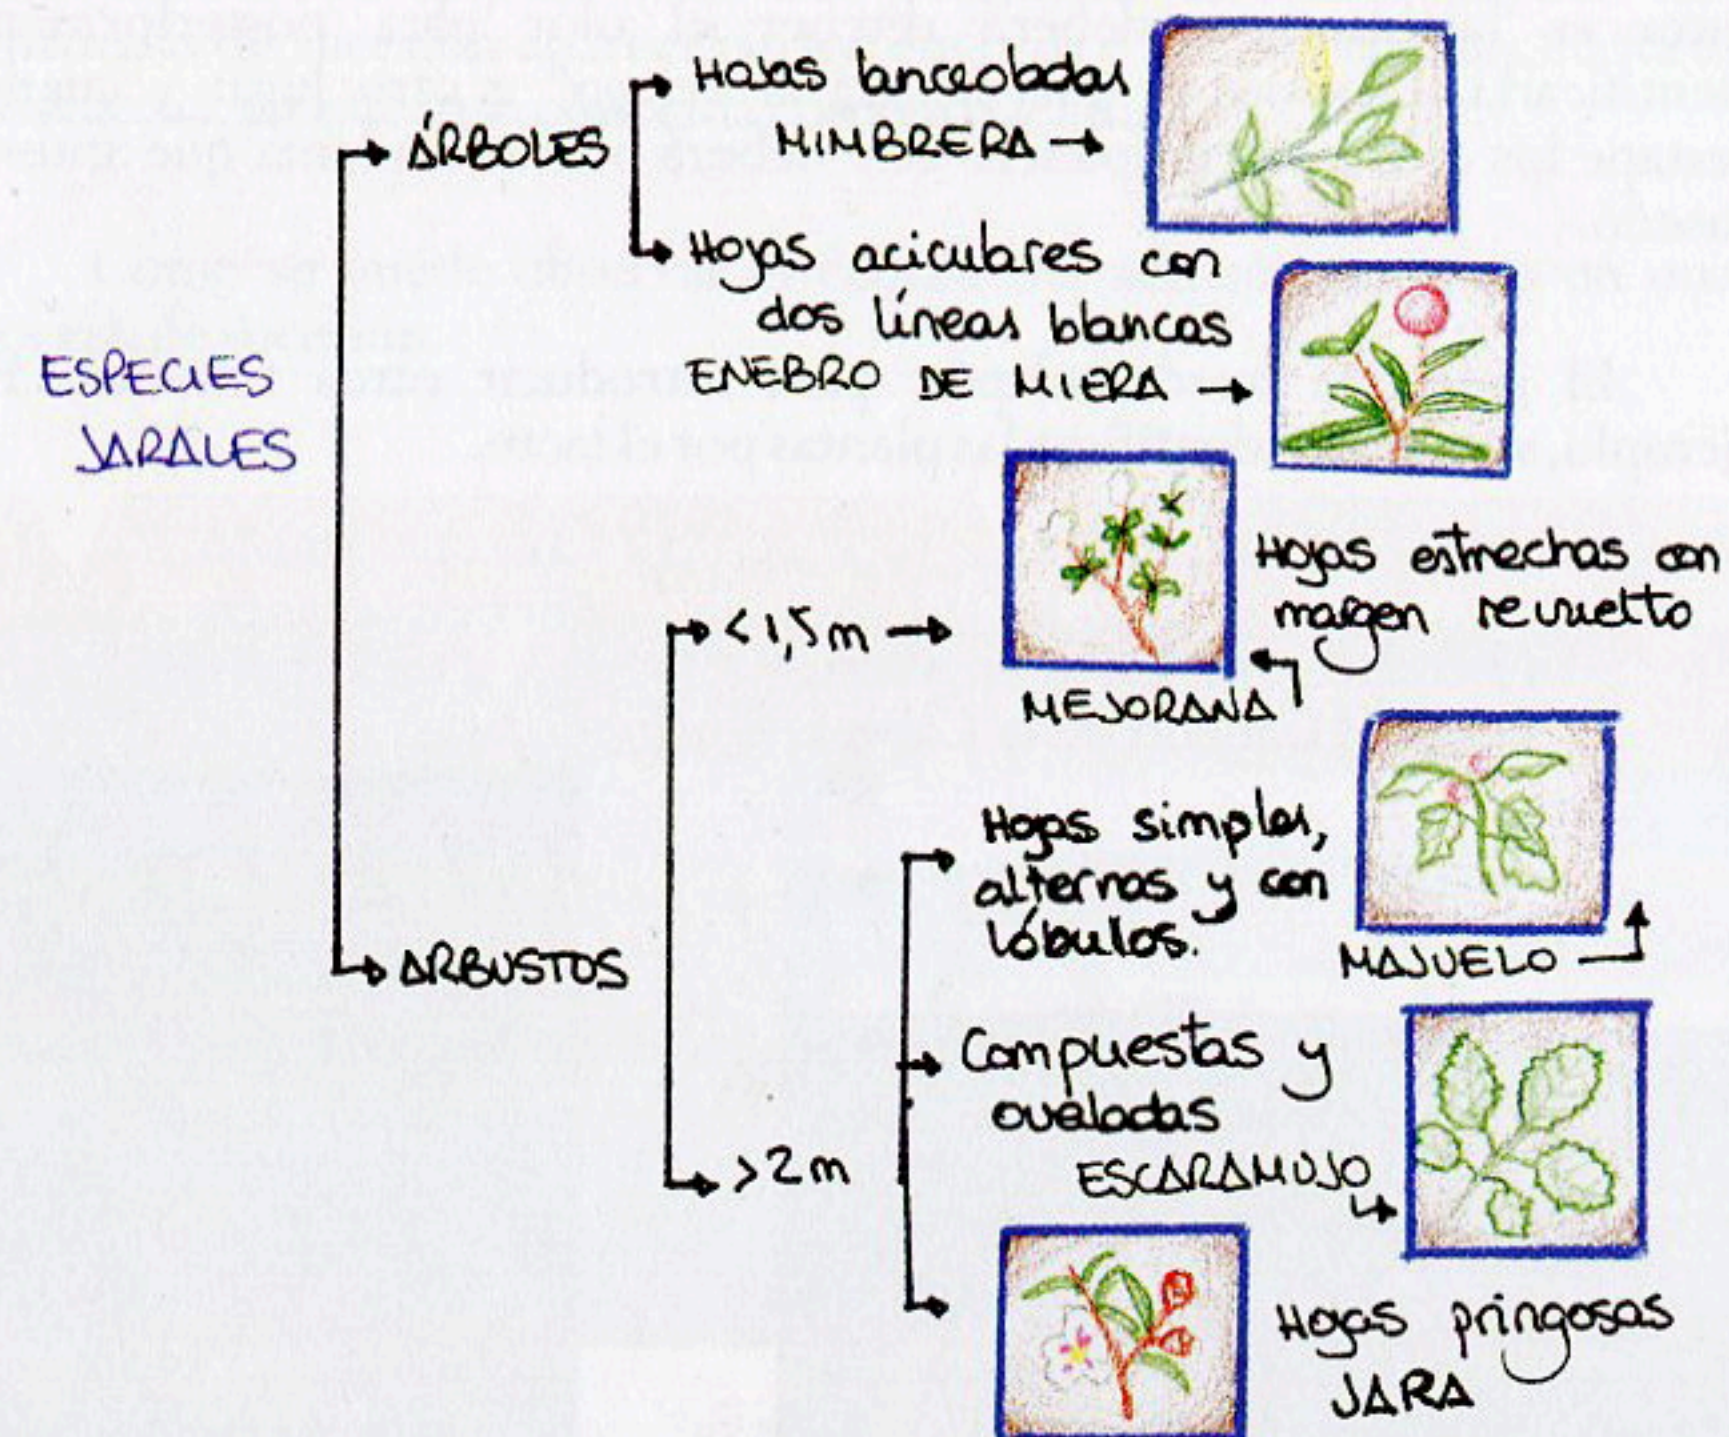 ESPECIES
JARALES
ÁRBOLES
Hojas lanceoladas
MIMBRERA
Hojas aciculares con
dos líneas blancas
ENEBRO DE MIERA
ARBUSTOS
< 1,5 m
Hojas estrechas con
margen revuelto
MEJORANA
> 2 m
Hojas simples,
alternas y con
lóbulos.
MAJUELO
Compuestas y
ovaladas
ESCARAMUJO
Hojas pringosas
JARA